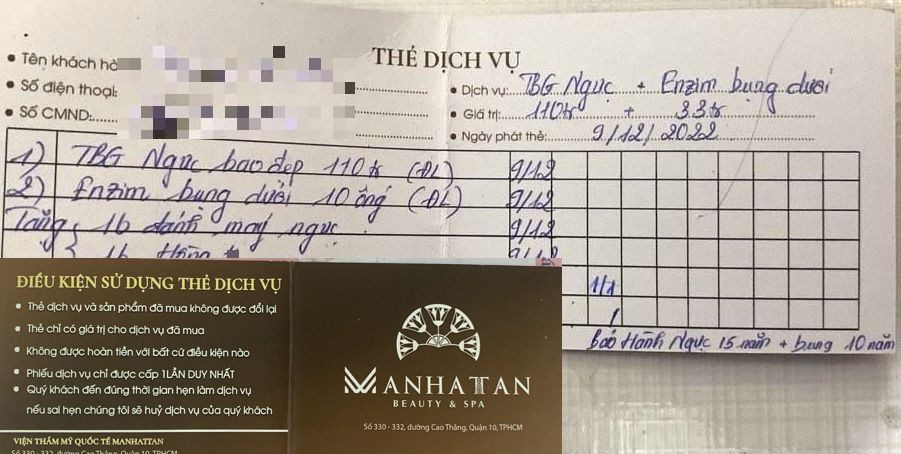 THẺ DỊCH VỤ
Tên khách hà
Số điện thoại:
Số CMND:
Dịch vụ: TBG Ngực + Enzim bụng dưới
Giá trị: 110tr + 33tr
Ngày phát thẻ: 9/12/2022
1) TBG Ngực bao đẹp 110tr (ĐL) 9/12
2) Enzim bụng dưới 10 ống (ĐL) 9/12
Tặng 1b đánh máy ngực 9/12
1b 9/12
1/1
bảo Hành Ngực 15 năm + bụng 10 năm
ĐIỀU KIỆN SỬ DỤNG THẺ DỊCH VỤ
Thẻ dịch vụ và sản phẩm đã mua không được đổi lại
Thẻ chỉ có giá trị cho dịch vụ đã mua
Không được hoàn tiền với bất cứ điều kiện nào
Phiếu dịch vụ chỉ được cấp 1LẦN DUY NHẤT
Quý khách đến đúng thời gian hẹn làm dịch vụ
nếu sai hẹn chúng tôi sẽ huỷ dịch vụ của quý khách
VIỆN THẨM MỸ QUỐC TẾ MANHATTAN
Số 330 - 332, đường Cao Thắng, Quận 10, TPHCM
MANHATTAN
BEAUTY & SPA
Số 330 - 332, đường Cao Thắng, Quận 10, TPHCM